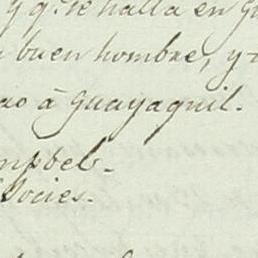 y q.e se halla en Gu
buen hombre, y
ao à Guayaquil.
mpbel.
Socies.